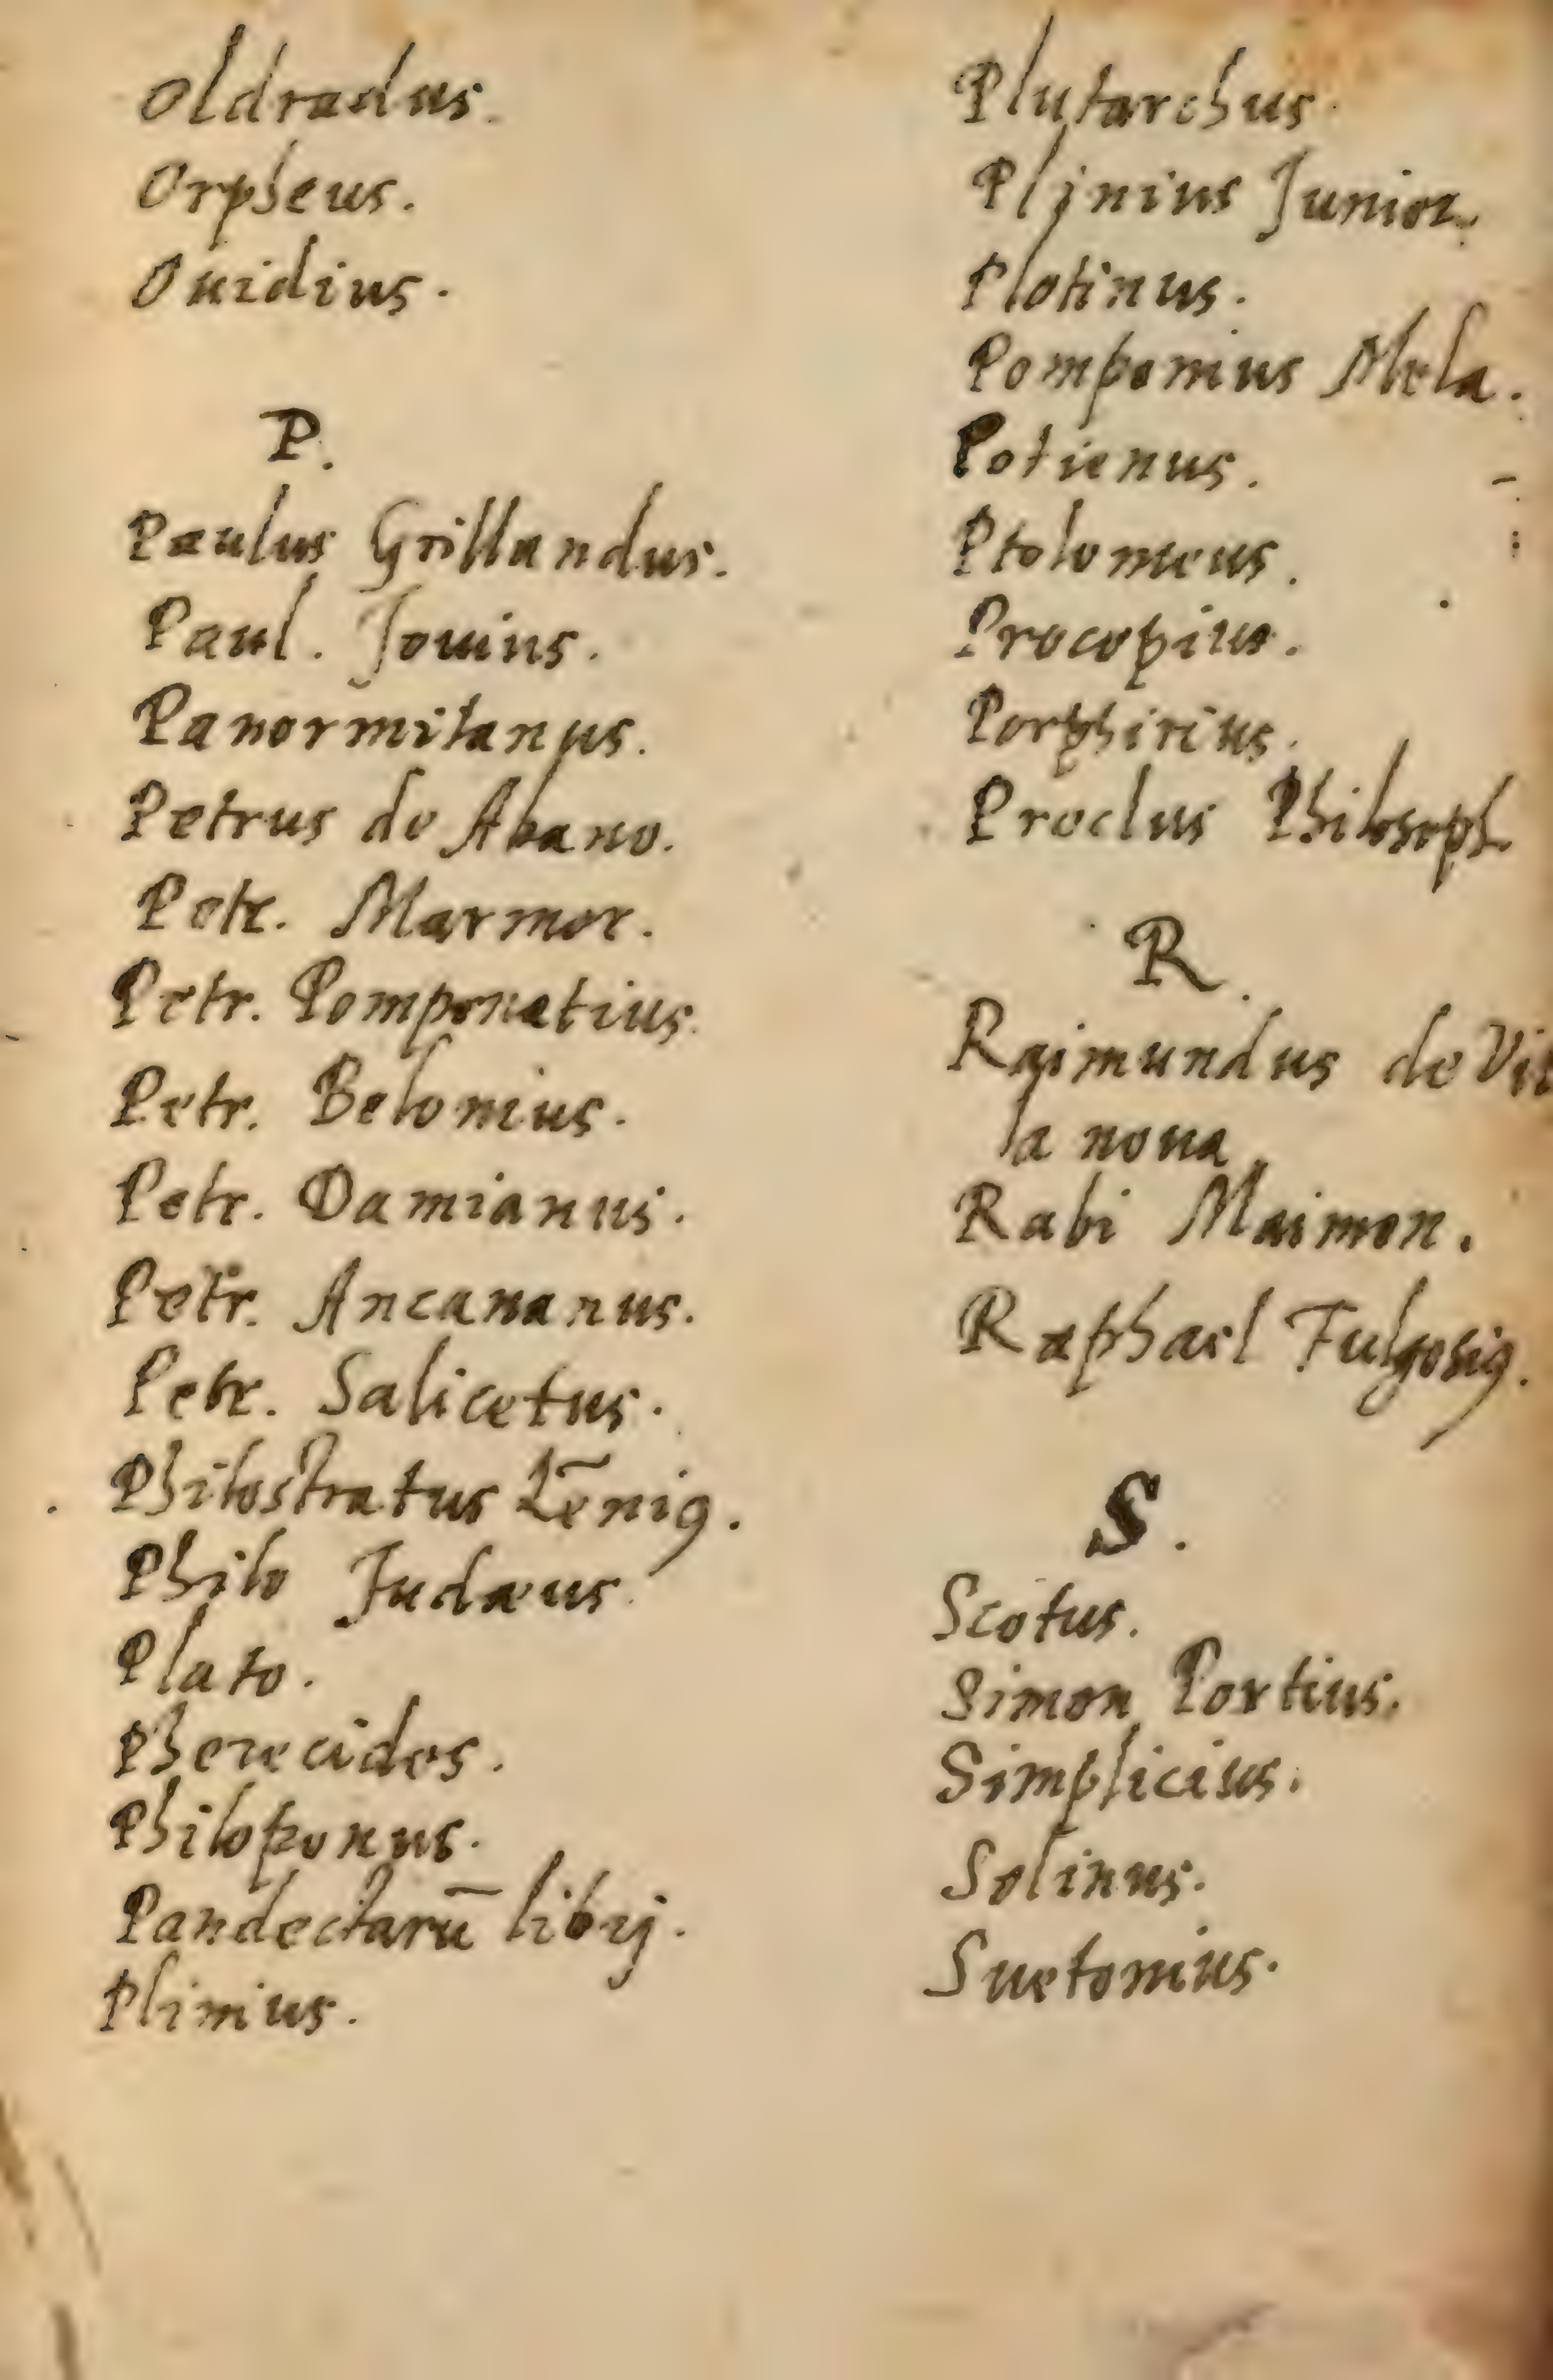 Oldradus.
Orpheus.
Ouidius.
P.
Paulus Grillandus.
Paul. Jouius.
Panormitanus.
Petrus de Abano.
Petr. Marmor.
Petr. Pomponatius.
Petr. Belonius.
Petr. Damianus.
Petr. Ancananus.
Petr. Salicetus.
Philostratus Lēniꝯ.
Philo Judæus.
Plato.
Pherecides.
Philoponus.
Pandectarū librij.
Plinius.
Plutarchus.
Plinius Junior.
Plotinus.
Pomponius Mela.
Potienus.
Ptolomeus.
Procopius.
Porphirius.
Proclus Philosoph.
R.
Raimundus de Vil
la noua
Rabi Maimon.
Raphael Fulgosiꝯ.
S.
Scotus.
Simon Portius.
Simplicius.
Solinus.
Suetonius.